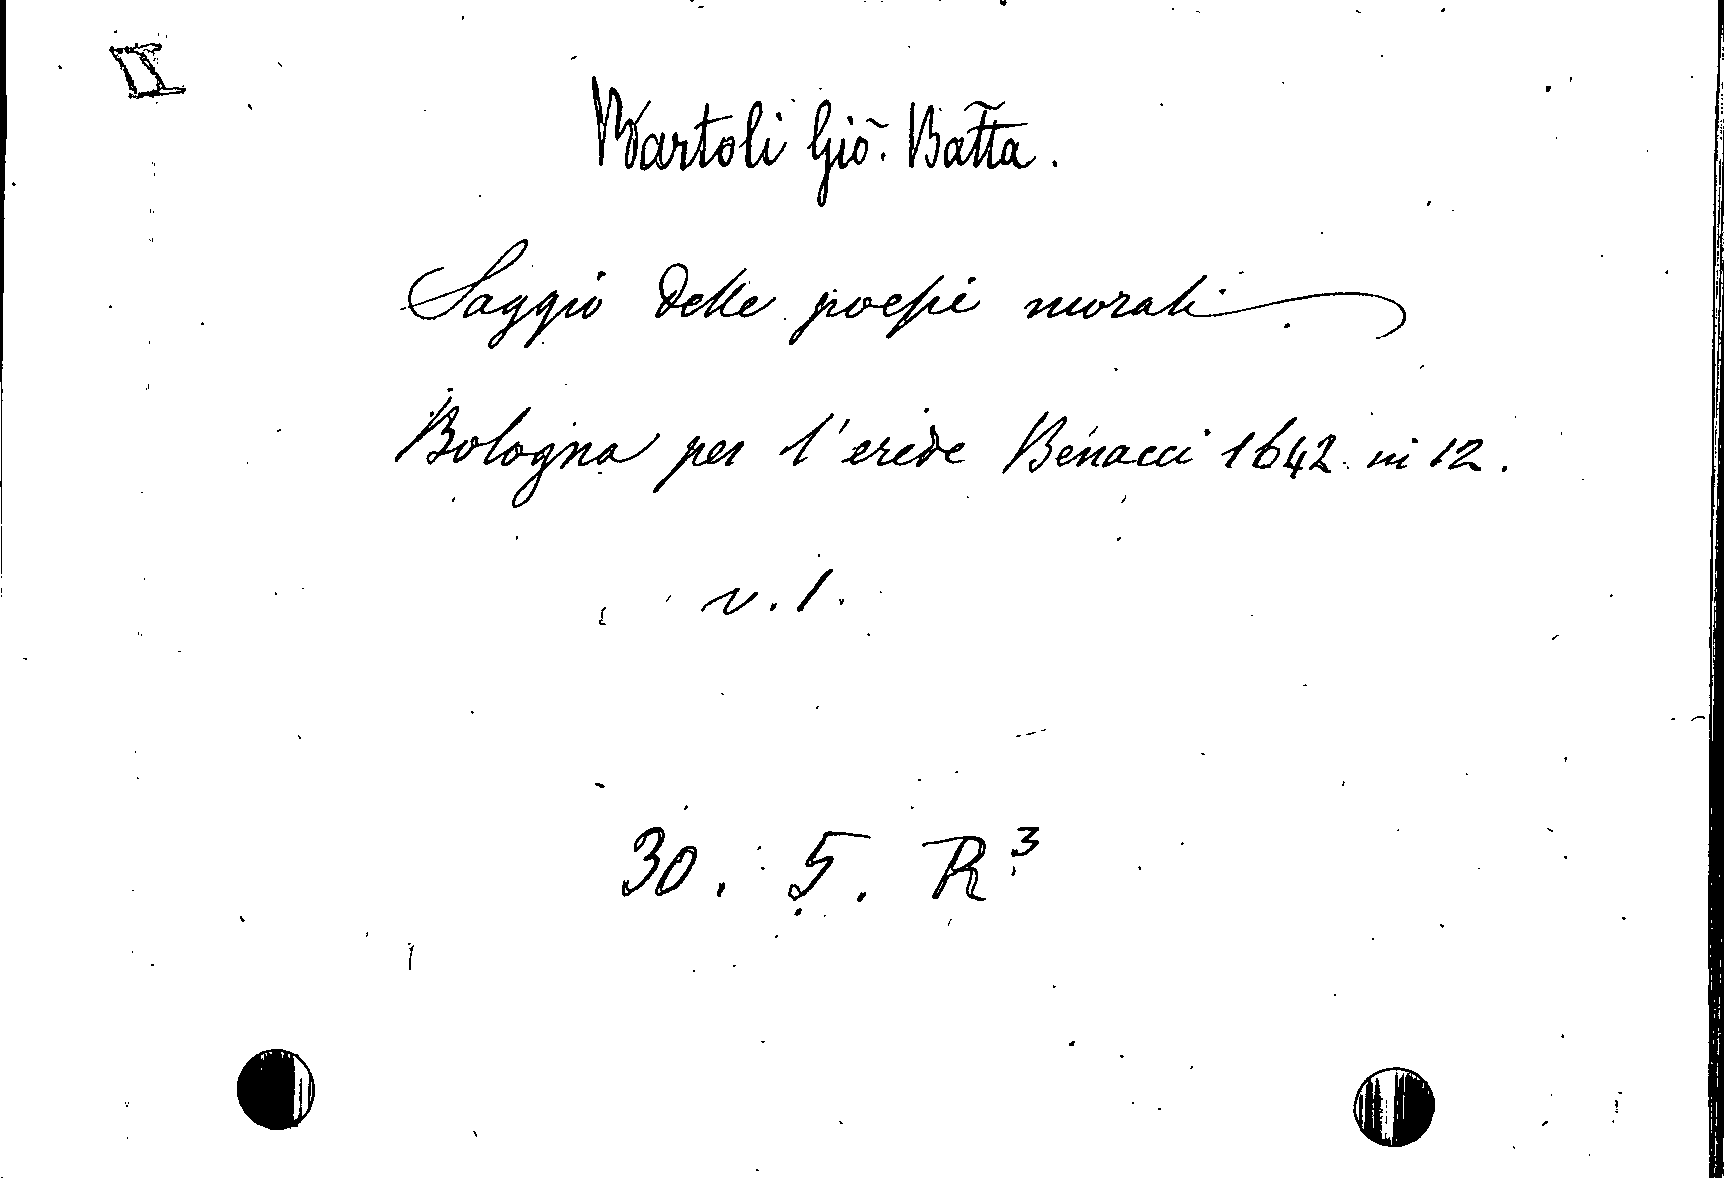 II
Bartoli Giõ. Bat̃ta.
Saggio delle poesie morali
Bologna per l'erede Benacci 1642 in 12.
v. 1.
30. 5. R³